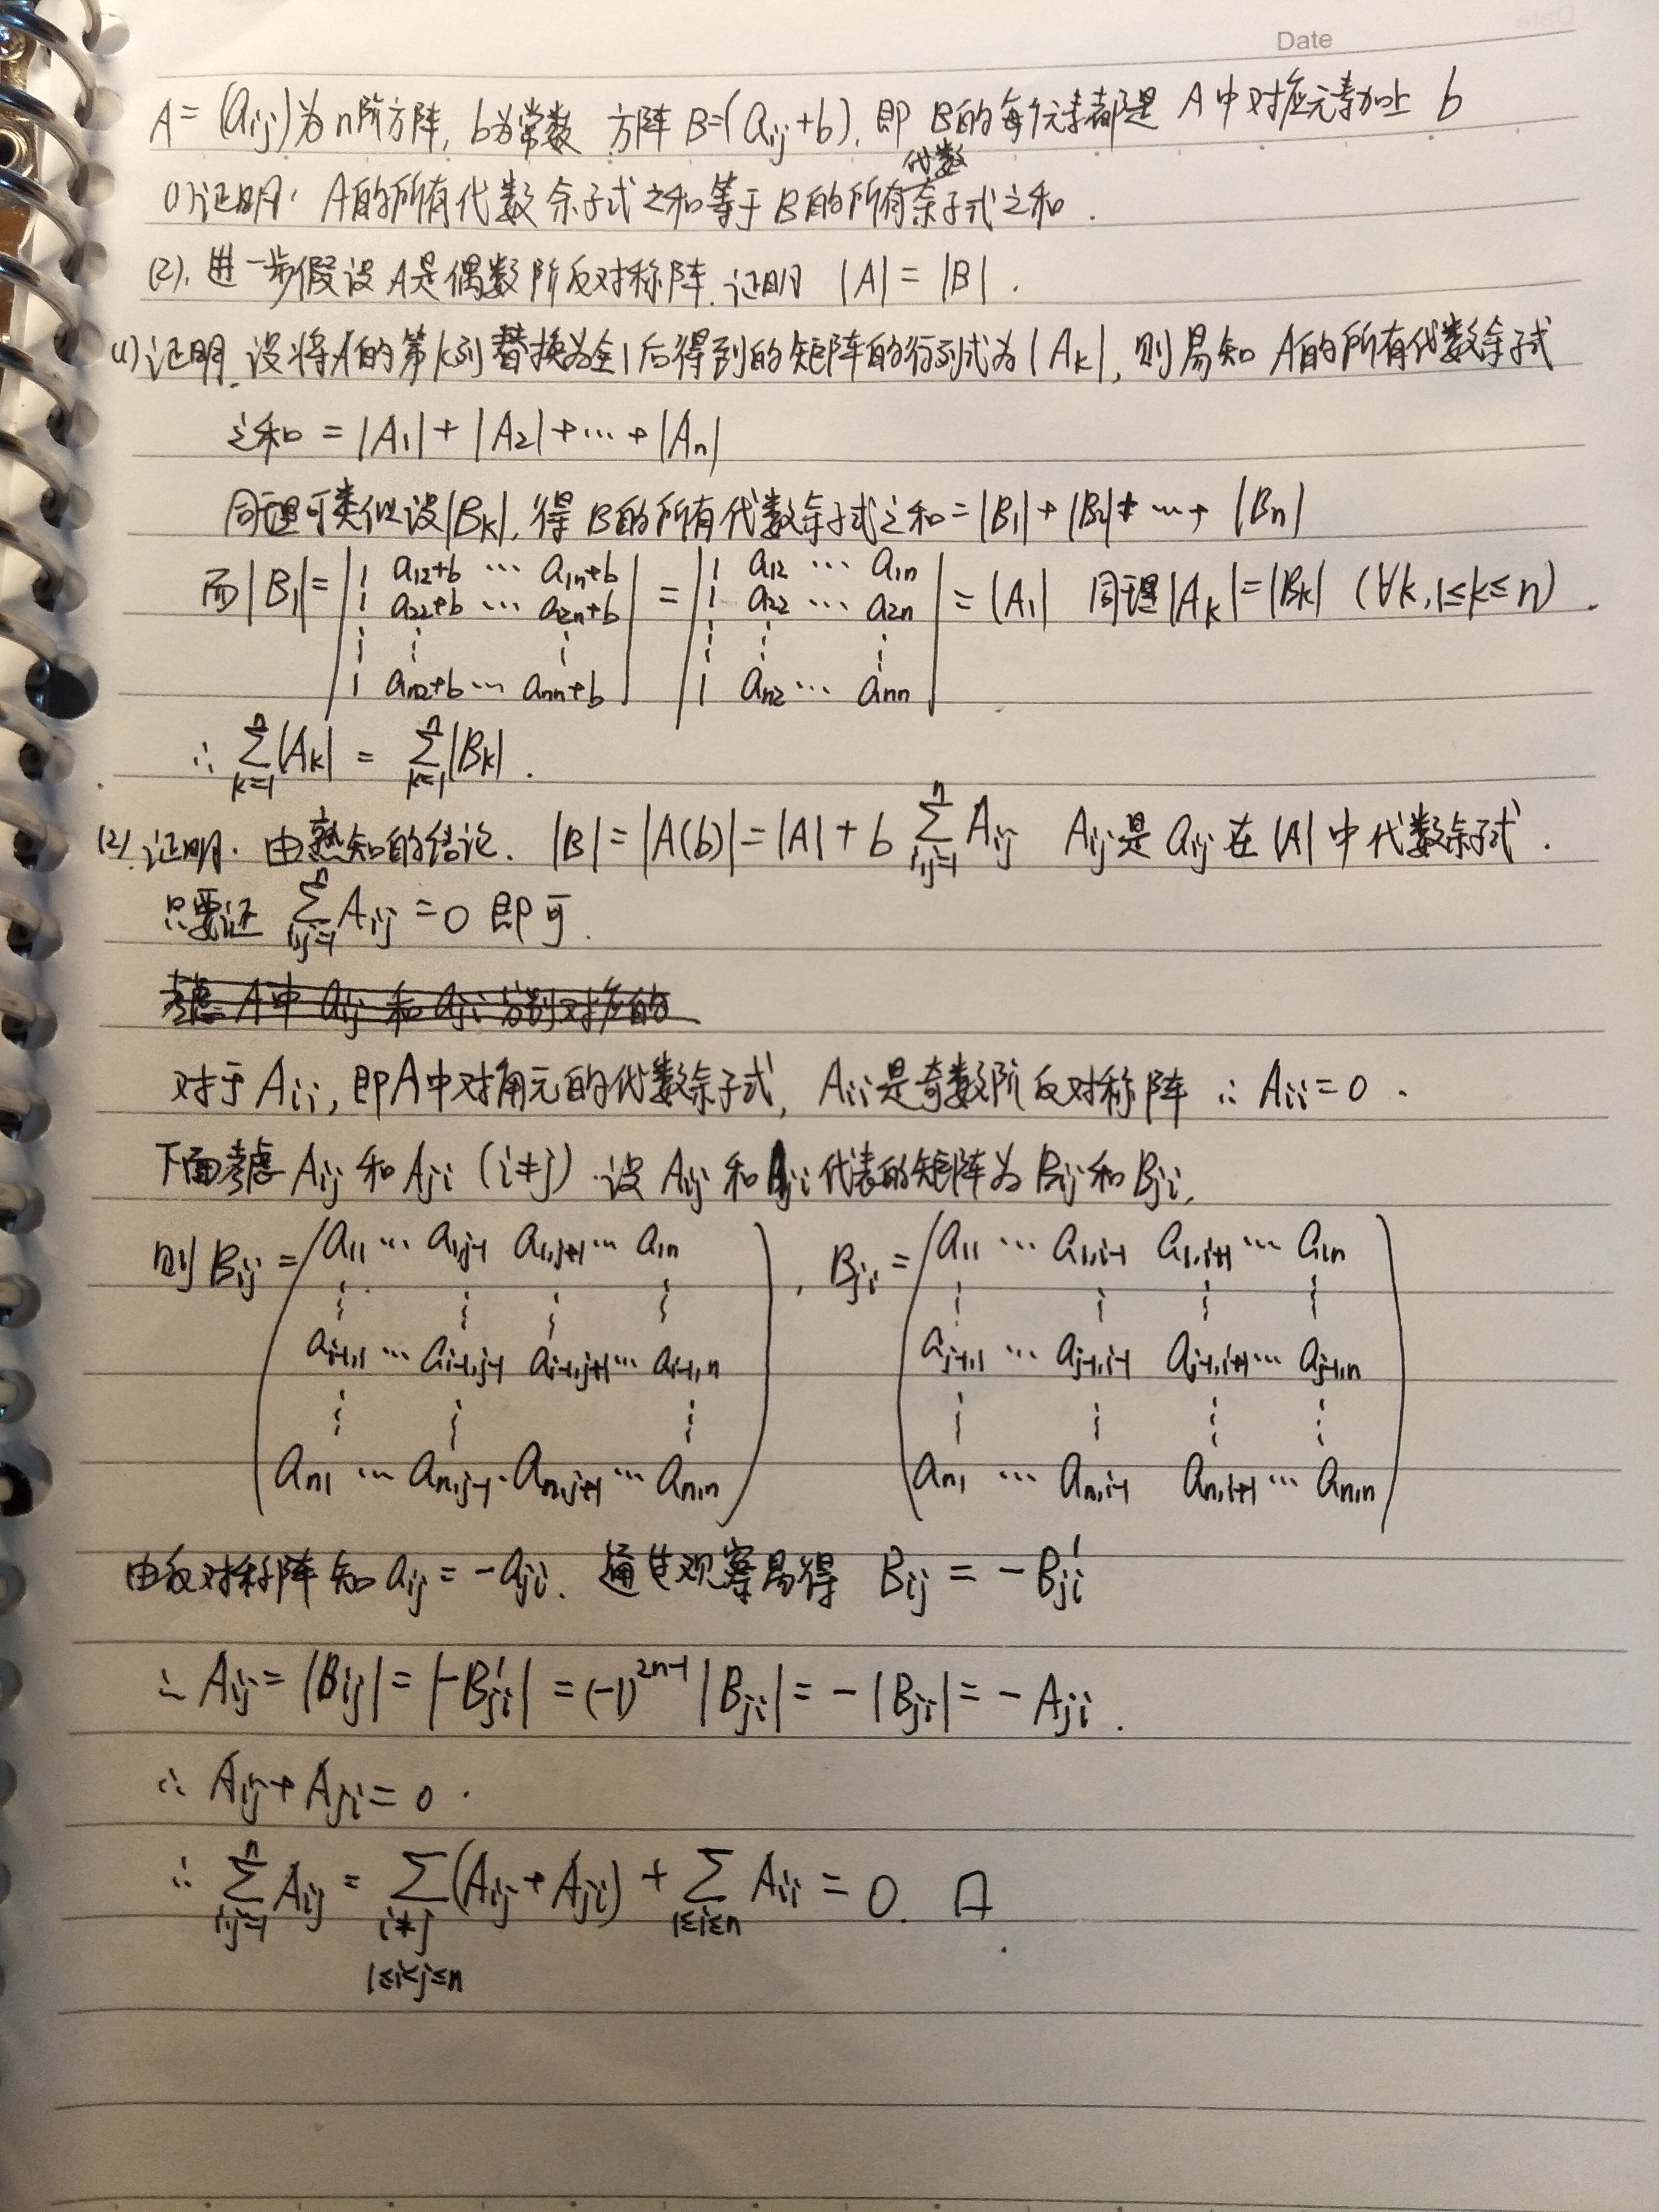 Date
A=(aij)为n阶方阵, b为常数 方阵B=(aij+b). 即B的每个元素都是A中对应元素加上 b
代数
(1)证明. A的所有代数余子式之和等于B的所有余子式之和.
(2). 进一步假设A是偶数阶反对称阵. 证明 |A|=|B|.
(1)证明. 设将A的第k列替换为全1后得到的矩阵的行列式为|Ak|, 则易知 A的所有代数余子式
之和 = |A1|+|A2|+…+|An|
同理可类似设|Bk|, 得B的所有代数余子式之和=|B1|+|B2|+…+|Bn|
而|B1|= | 1 a12+b … a1n+b | = | 1 a12 … a1n | = |A1| 同理|Ak|=|Bk| (∀k, 1≤k≤n).
1 a22+b … a2n+b 1 a22 … a2n
⋮ ⋮ ⋮ ⋮ ⋮ ⋮
1 an2+b … ann+b 1 an2 … ann
∴ ∑_{k=1}^{n}|Ak| = ∑_{k=1}^{n}|Bk|.
(2) 证明. 由熟知的结论. |B|=|A(b)|=|A|+b ∑_{i,j=1}^{n} Aij Aij是aij在|A|中代数余子式.
只要证 ∑_{i,j=1}^{n} Aij=0 即可.
考虑A中aij和aji分别对应的
对于Aii, 即A中对角元的代数余子式, Aii是奇数阶反对称阵 ∴ Aii=0.
下面考虑Aij和Aji (i≠j). 设Aij和Aji代表的矩阵为Bij和Bji,
则Bij = ( a11 … a1,j-1 a1,j+1 … a1n ) , Bji = ( a11 … a1,i-1 a1,i+1 … a1n )
⋮ ⋮ ⋮ ⋮ ⋮ ⋮ ⋮ ⋮
ai-1,1 … ai-1,j-1 ai-1,j+1 … ai-1,n aj-1,1 … aj-1,i-1 aj-1,i+1 … aj-1,n
⋮ ⋮ ⋮ ⋮ ⋮ ⋮ ⋮
an1 … an,j-1 an,j+1 … an,n an1 … an,i-1 an,i+1 … an,n
由反对称阵知 aij=-aji. 通过观察易得 Bij = -Bji'
∴ Aij=|Bij|=|-Bji'|=(-1)^{2n-1}|Bji|=-|Bji|=-Aji.
∴ Aij+Aji=0.
∴ ∑_{i,j=1}^{n} Aij = ∑(Aij+Aji) + ∑_{1≤i≤n} Aii = 0. □
i≠j
1≤i<j≤n